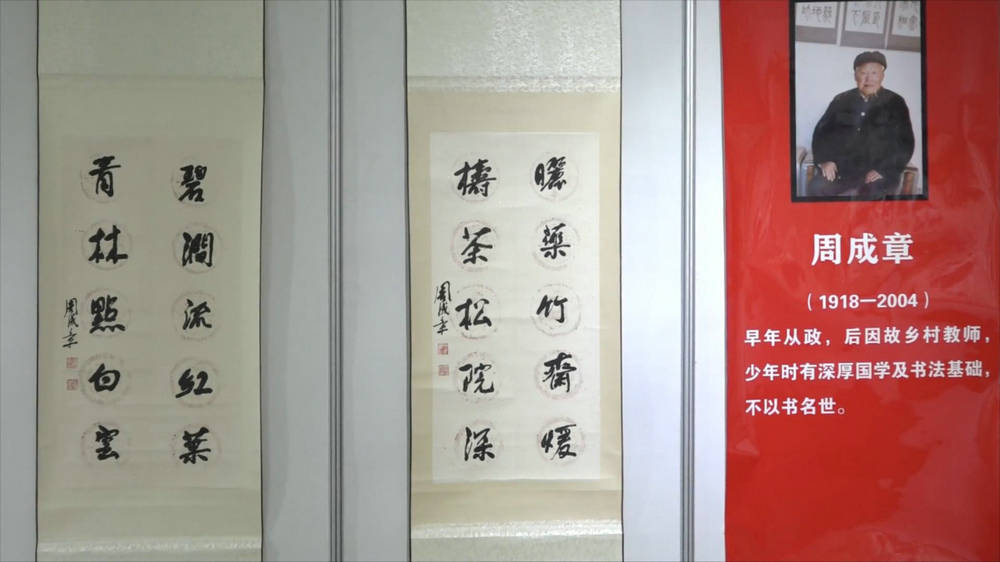 碧澗流紅葉
青林點白雲
周成章
曬藥竹齋煖
檮茶松院深
周成章
周成章
（1918—2004）
早年从政，后因故乡村教师，
少年时有深厚国学及书法基础，
不以书名世。